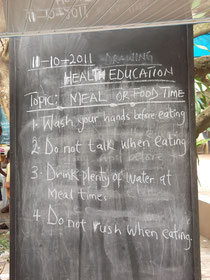 11-10-2011
HEALTH EDUCATION
Topic: MEAL OR FOOD TIME
1. Wash your hands before eating
2. Do not talk when eating
3. Drink plenty of water at
Meal time.
4. Do not rush when eating.